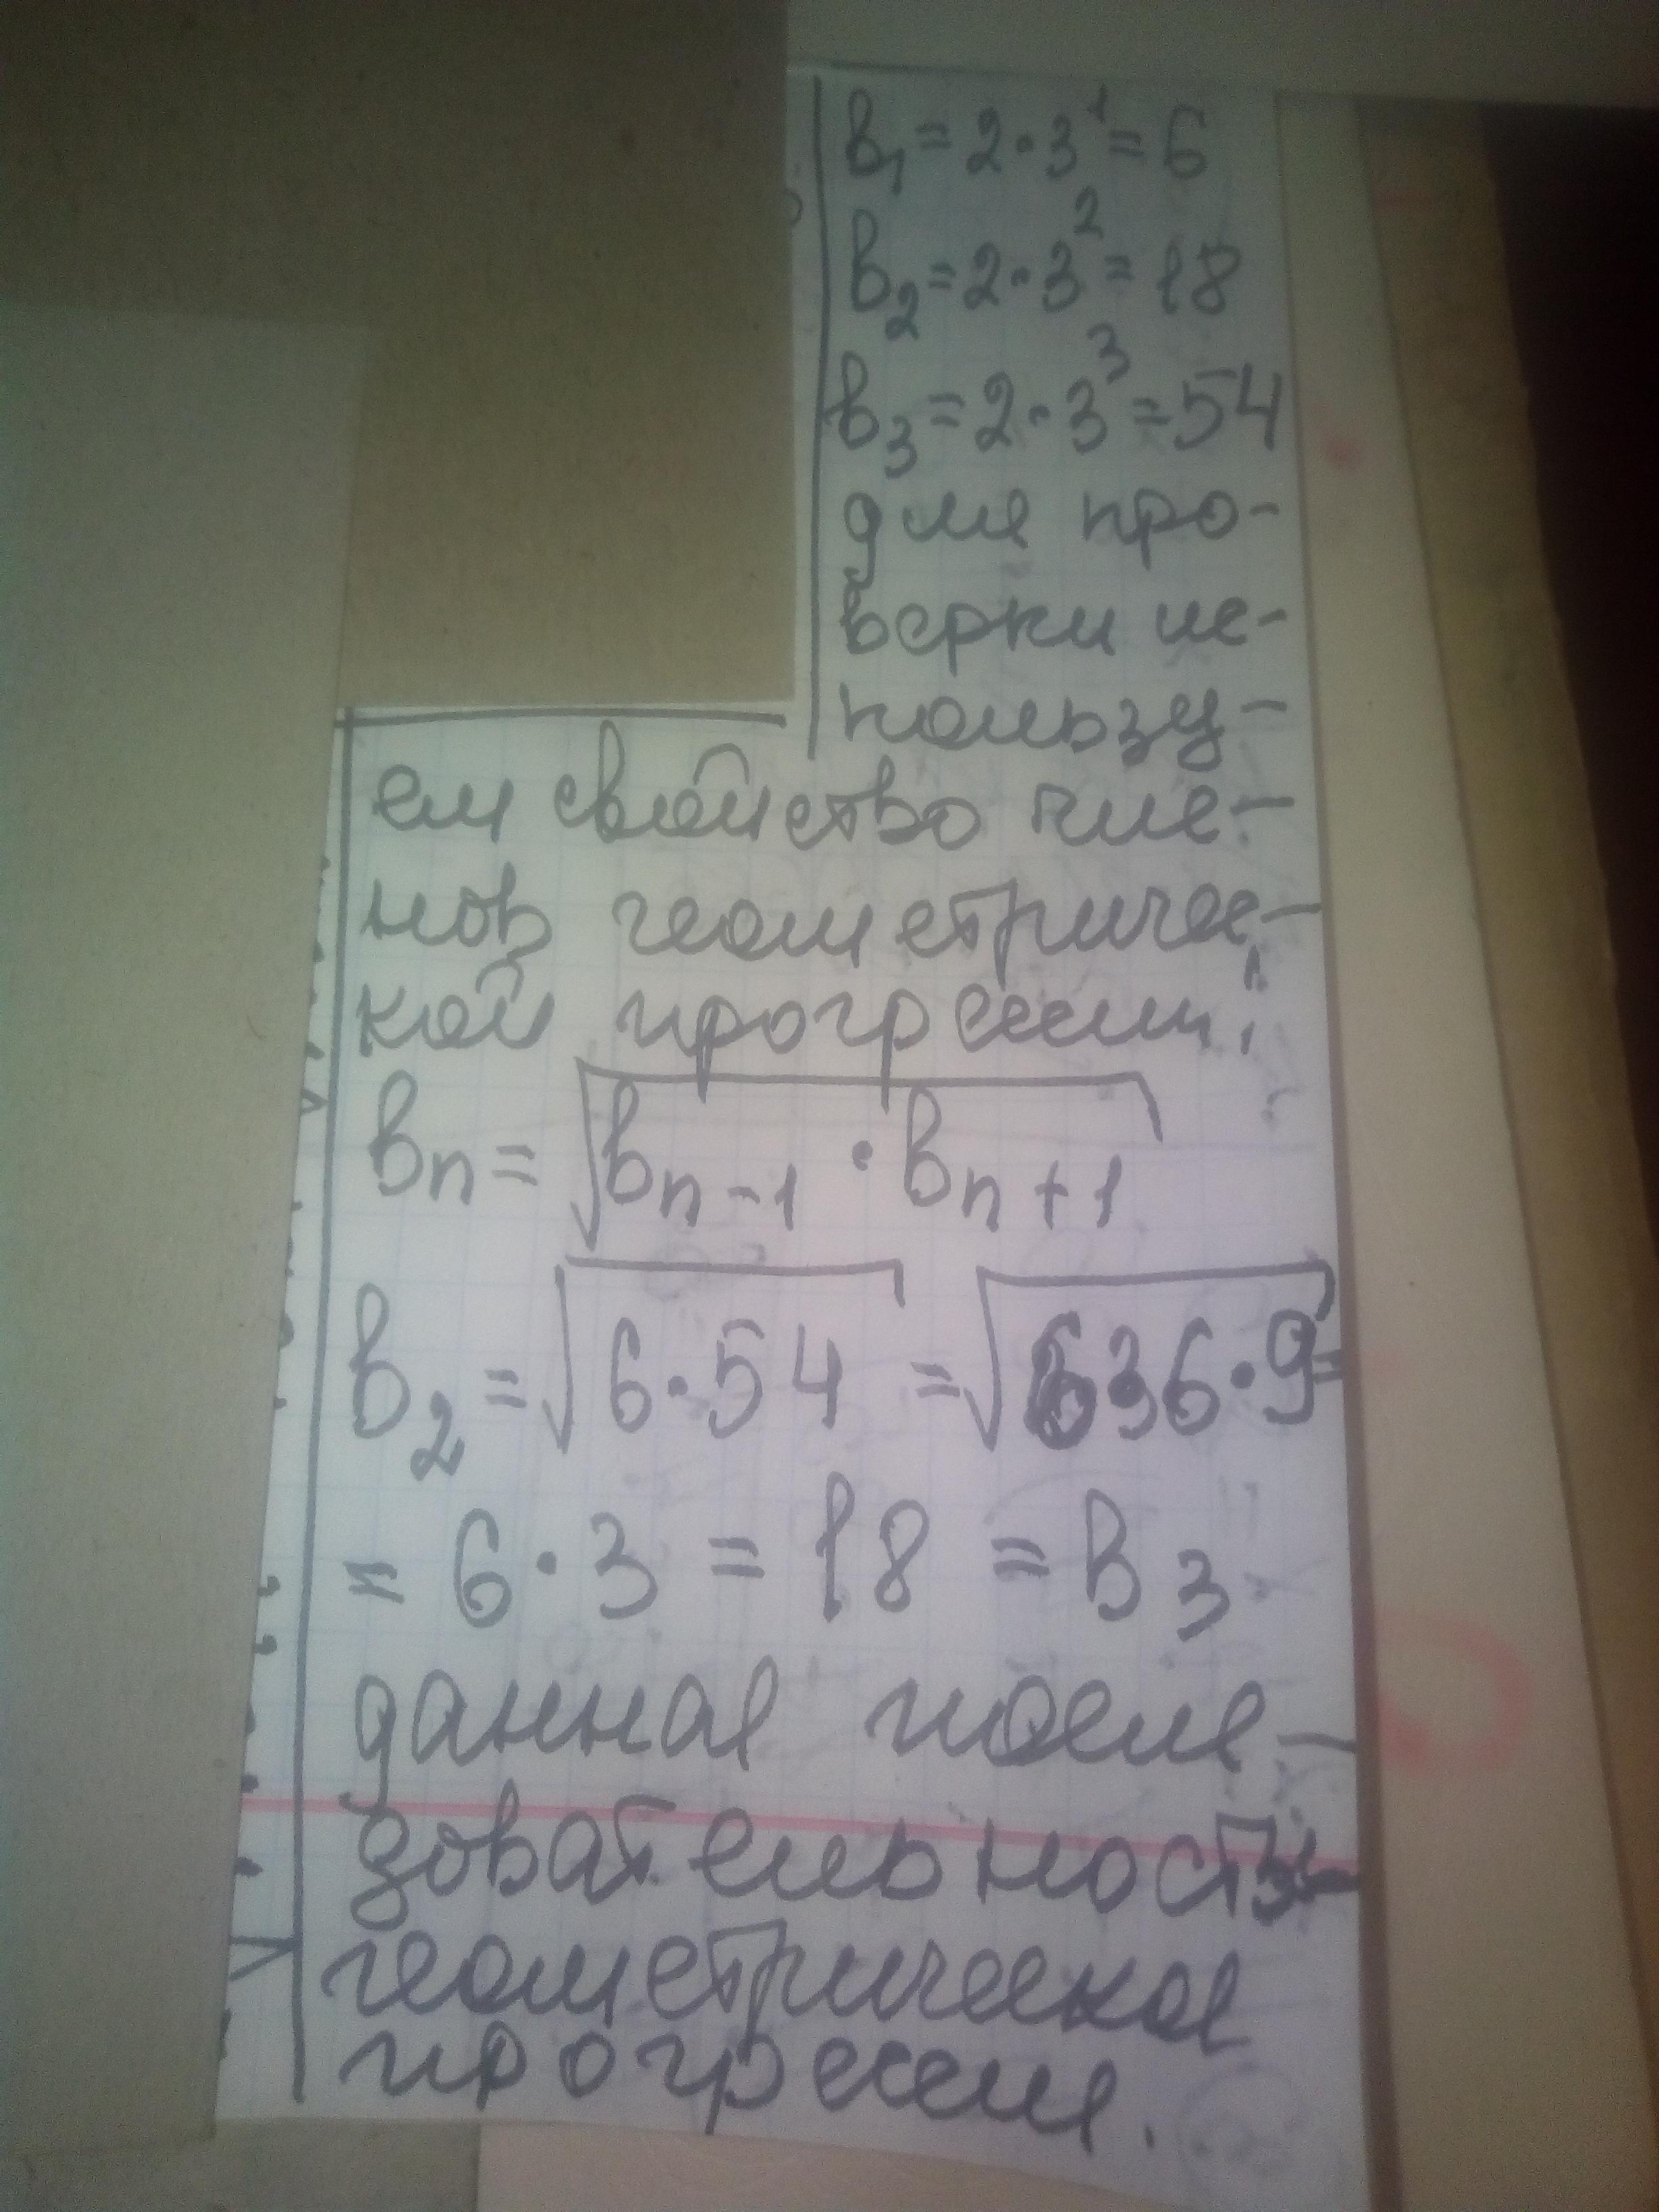 b₁ = 2·3¹ = 6
b₂ = 2·3² = 18
b₃ = 2·3³ = 54
для про-
верки ис-
пользу-
ем свойство чле-
нов геометричес-
кой прогрессии:
bn = √(bn-1 · bn+1)
b₂ = √(6·54) = √(36·9) =
= 6·3 = 18 = b₃
данная после-
довательность
геометрическая
прогрессия.